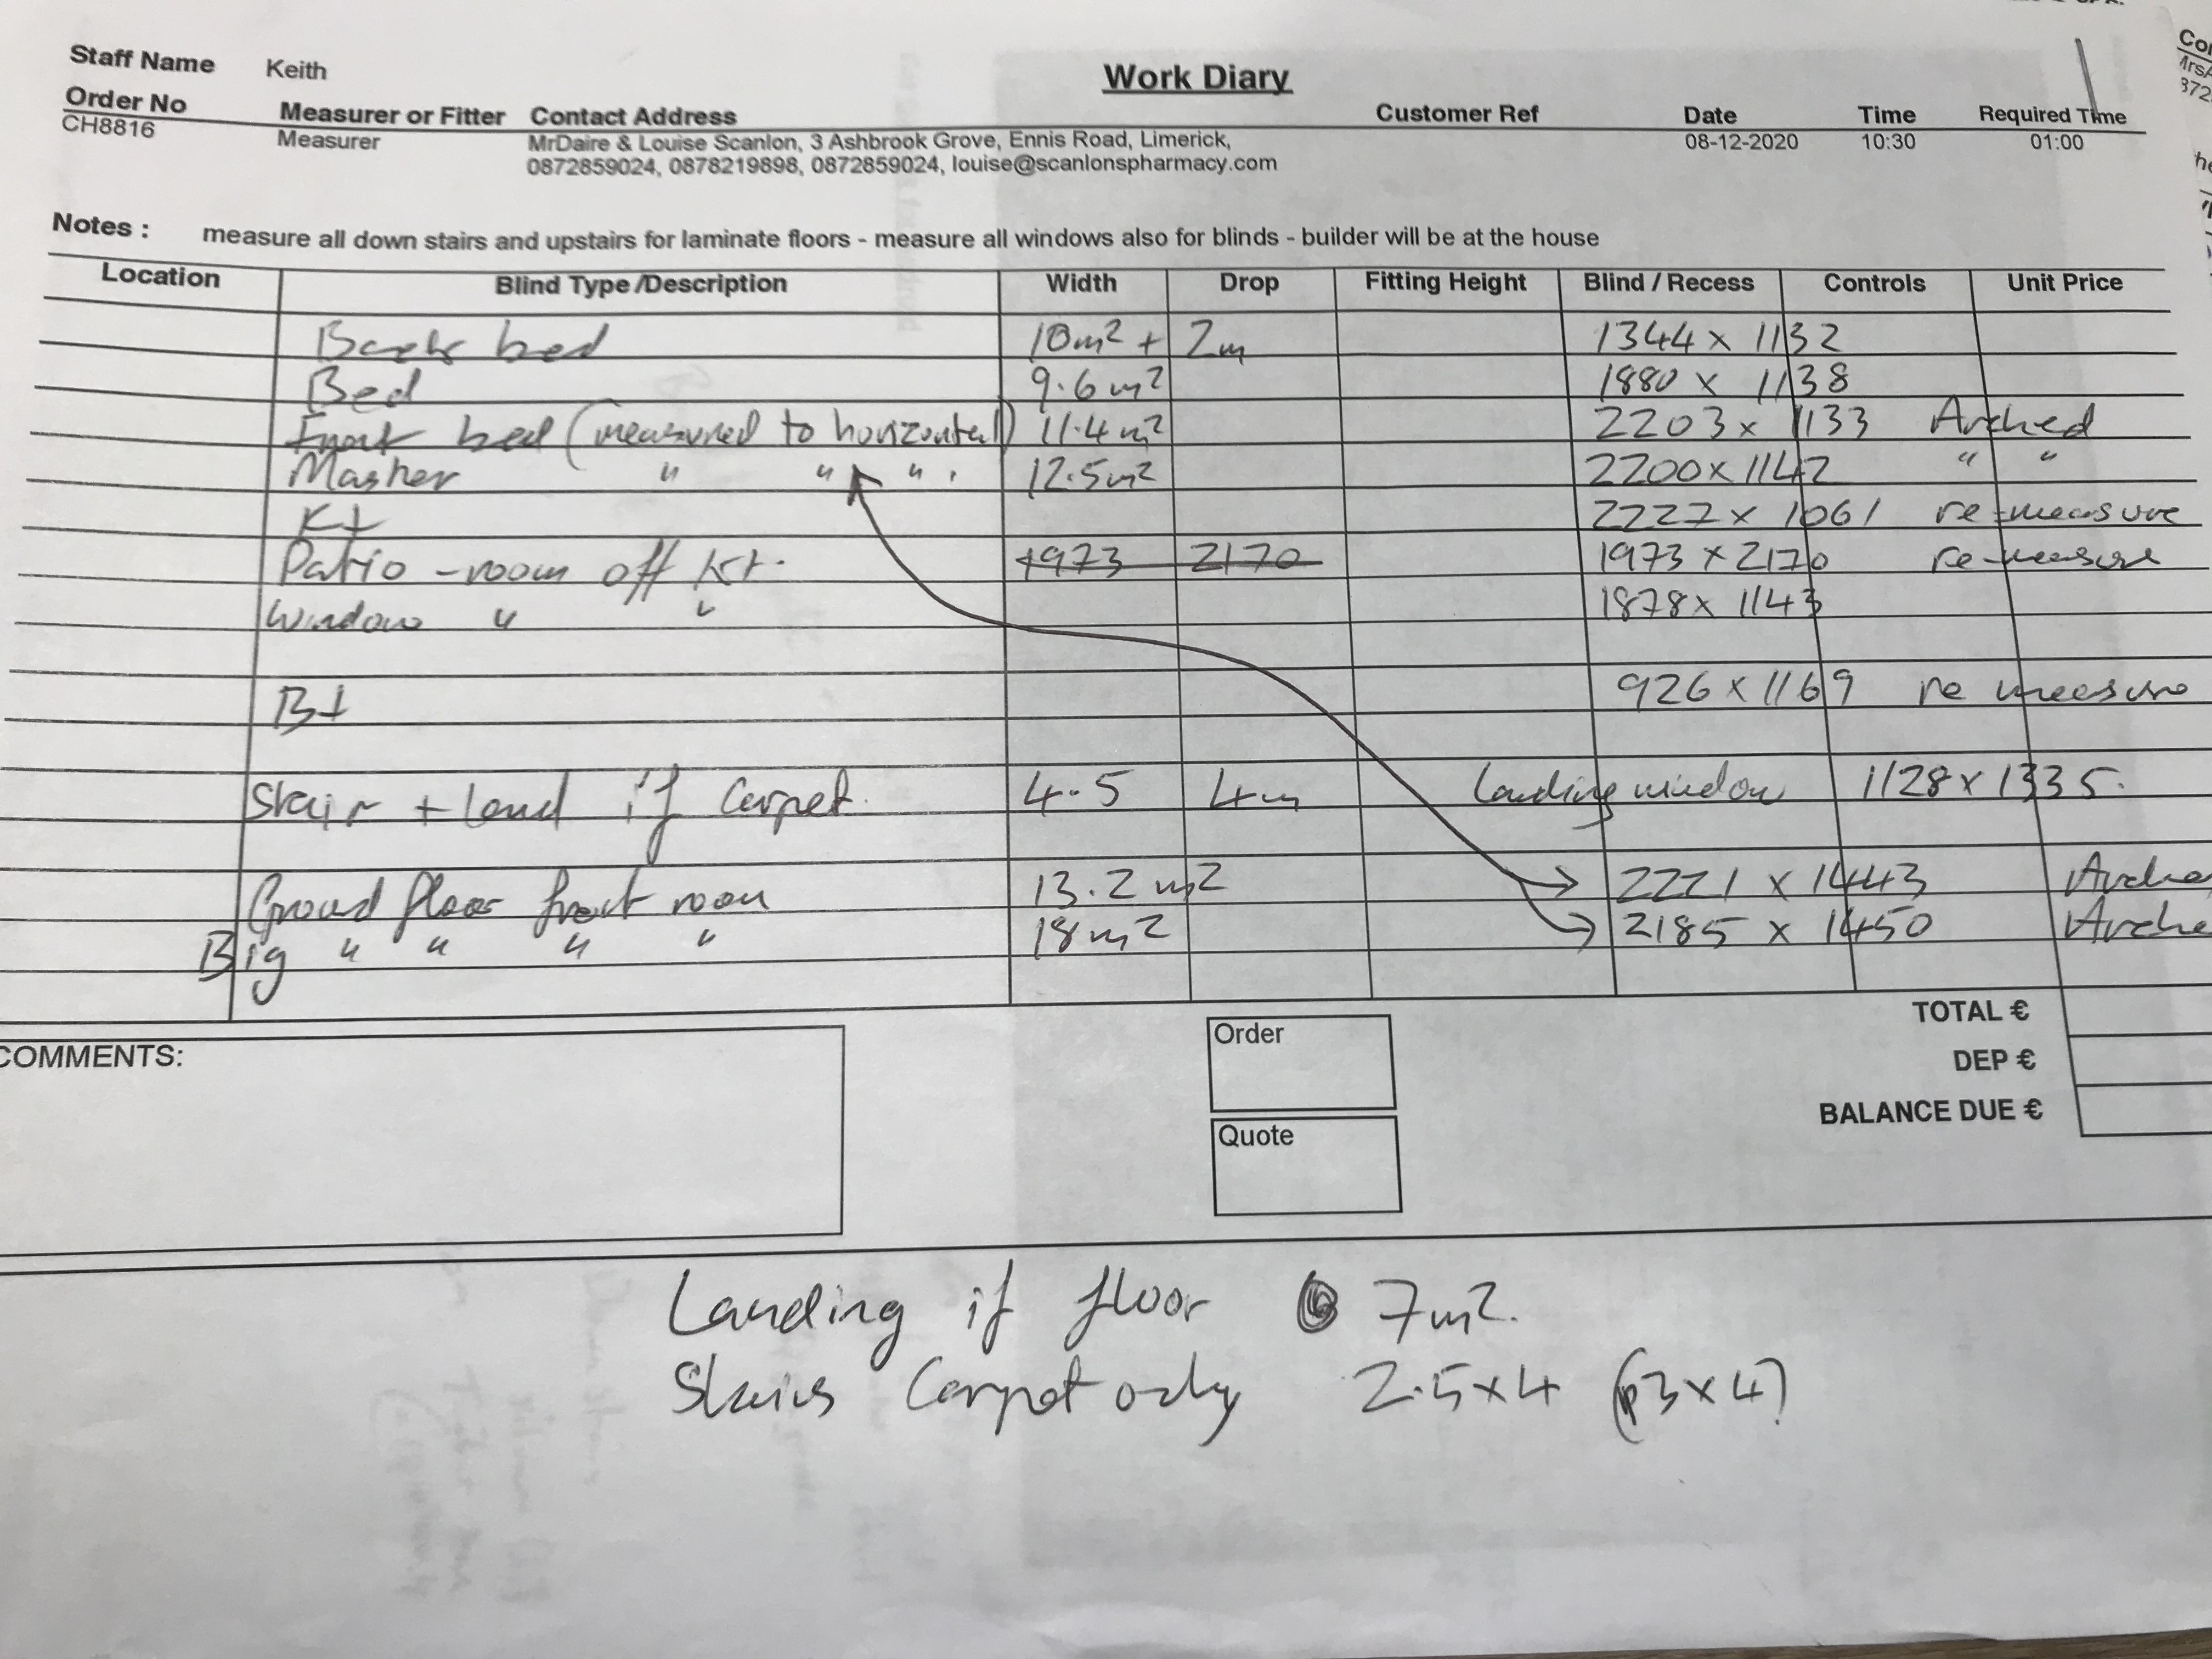 Staff Name Keith
Work Diary
Order No Measurer or Fitter Contact Address Customer Ref Date Time Required Time
CH8816 Measurer MrDaire & Louise Scanlon, 3 Ashbrook Grove, Ennis Road, Limerick, 08-12-2020 10:30 01:00
0872859024, 0878219898, 0872859024, louise@scanlonspharmacy.com
Notes : measure all down stairs and upstairs for laminate floors - measure all windows also for blinds - builder will be at the house
Location Blind Type /Description Width Drop Fitting Height Blind / Recess Controls Unit Price
Back bed 10m² + 2m 1344 x 1132
Bed 9.6m² 1880 x 1138
Front bed (measured to horizontal) 11.4m² 2203 x 1133 Arched
Master " " " . 12.5m² 2200 x 1142 " "
Kt 2227 x 1061 re-measure
Patio - room off Kt. 1973 2170 1973 x 2170 re-measure
Window " " 1878 x 1143
Bt 926 x 1169 re measure
Stair + land if Carpet. 4.5 4m Landing window 1128 x 1335.
Ground floor front room 13.2m² 2221 x 1443 Arche
Big " " " " 18m² 2185 x 1450 Arche
TOTAL €
COMMENTS: Order
DEP €
BALANCE DUE €
Quote
Landing if floor 7m².
Stairs Carpet only 2.5x4 (3x4)